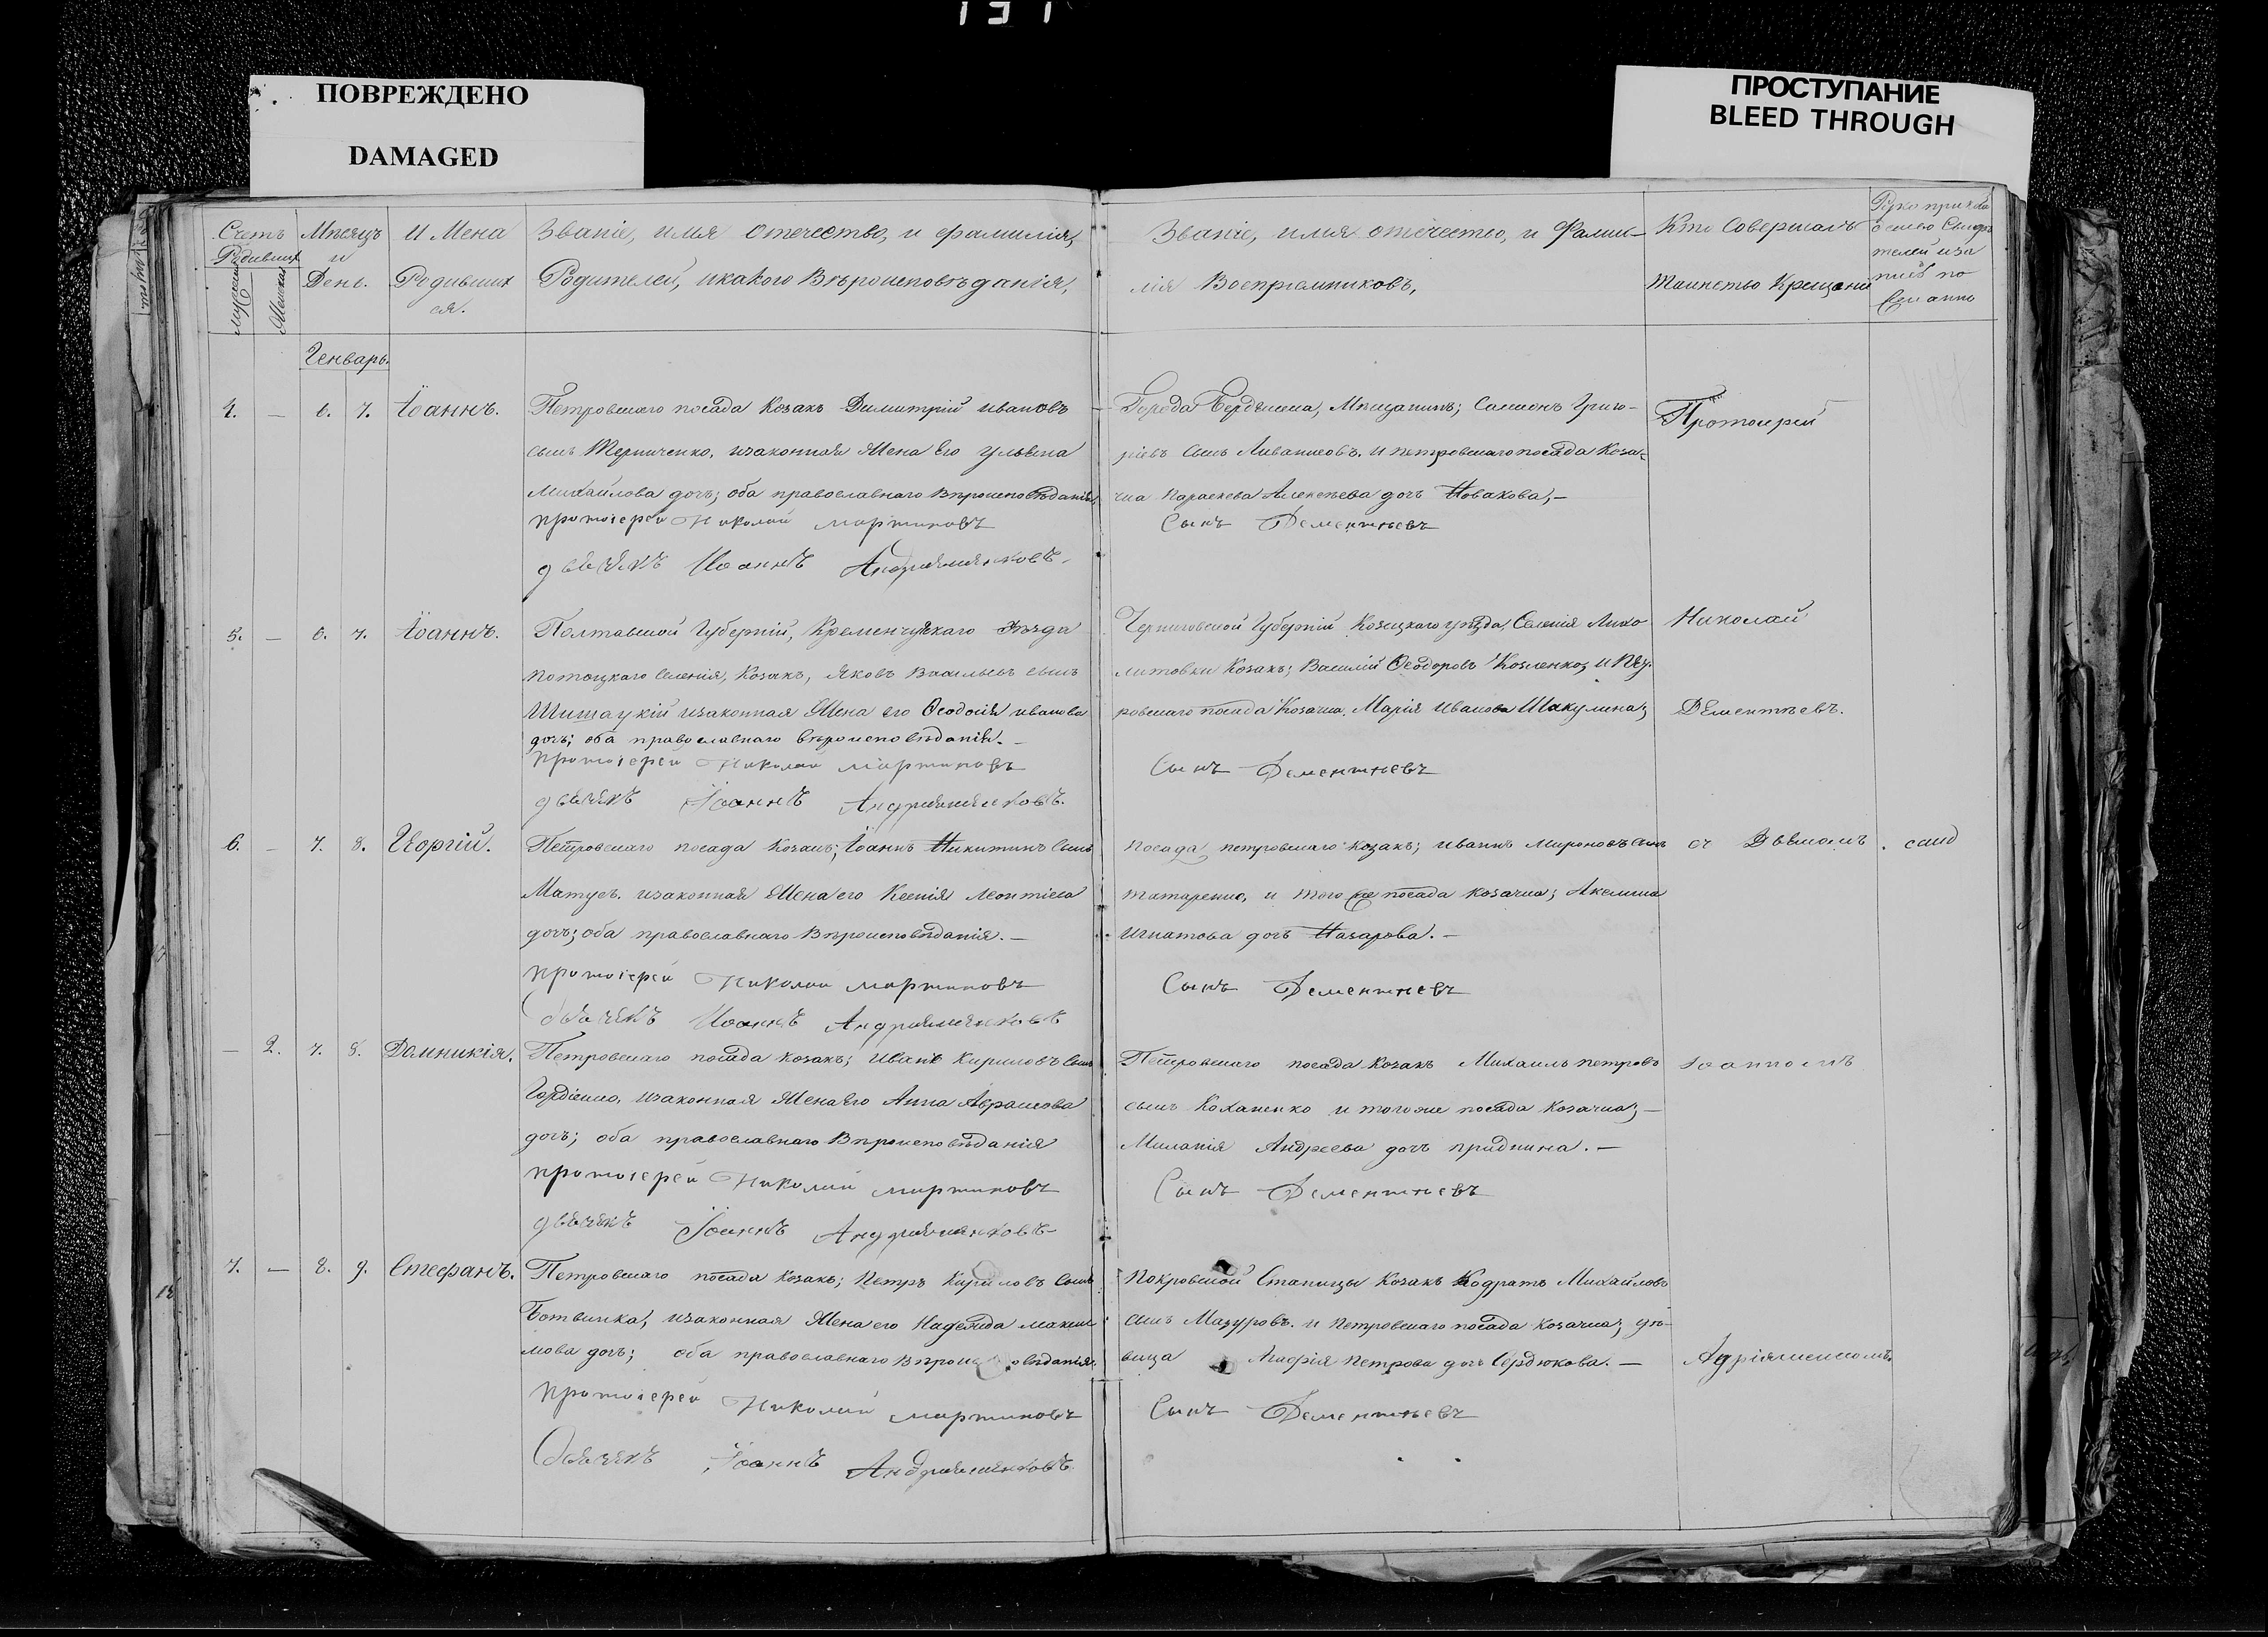 ПОВРЕЖДЕНО
DAMAGED
ПРОСТУПАНИЕ
BLEED THROUGH
Счетъ
Родивших
Мѣсяцъ
и
День.
и Мена
Родивших
ся.
Званіе, имя отечество, и фамилія,
Родителей, и какого Вѣроисповѣданія,
Званіе, имя отечество, и Фами-
лія Воспріемниковъ,
Кто Совершалъ
таинство Крещенія
Генварь.
4. — 6. 7. Іоаннъ.
Петровскаго посада Козакъ Димитрій ивановъ
сынъ изаконная Жена Его ульяна
Михайлова дочь; оба православнаго Вѣроисповѣданія,
протоіерей Николай мартиновъ
дьячекъ Иоаннъ
Города Мѣщанинъ; Григо-
ріевъ сынъ и петровскаго посада Коза-
чка Параскева Алексѣева дочь Новакова, —
Сынъ Дементьевъ
Протоиерей
5. — 6. 7. Іоаннъ.
Полтавской Губерніи, Кременчуцкаго уѣзда
Потоцкаго селенія, Козакъ, Яковъ Васильевъ сынъ
Шишацкій изаконная Жена его Ѳеодосія иванова
дочь; оба православнаго вѣроисповѣданія. —
протоіерей Николай мартиновъ
дьячекъ Іоаннъ
Черниговской Губерніи Козецкаго уѣзда, Селенія
Козакъ; Василій Ѳеодоровъ Козленко, и Пет-
ровскаго посада Козачка, Марія иванова Шакулина;
Сынъ Дементьевъ
Николай
Дементьевъ.
6. — 7. 8. Георгій.
Петровскаго посада Козакъ; Іоаннъ Никитинъ сынъ
Матусъ. изаконная Жена его Ксенія Леонтіева
дочь; оба православнаго Вѣроисповѣданія. —
протоіерей Николай мартиновъ
дьячекъ Иоаннъ
посада петровскаго козакъ; иванъ Мироновъ сынъ
татаренко, и того же посада козачка; Акелина
игнатова дочь Назарова. —
Сынъ Дементьевъ
съ Дьякомъ
— 2. 7. 8. Домникія.
Петровскаго посада козакъ; иванъ Кириловъ сынъ
Гордіенко, изаконная Жена Его Анна Аврамова
дочь; оба православнаго Вѣроисповѣданія
протоіерей Николай мартиновъ
дьячекъ Іоаннъ
Петровскаго посада Козакъ Михаилъ петровъ
сынъ Коханенко и тогоже посада Козачка; —
Миланія Андреева дочь —
Сынъ Дементьевъ
Іоанномъ
7. — 8. 9. Стефанъ.
Петровскаго посада козакъ; Петръ Кириловъ сынъ
Ботвинка, изаконная Жена его Надежда макси
мова дочь; оба православнаго
протоіерей Николай мартиновъ
дьячекъ Іоаннъ
Покровской Станицы Козакъ Кодратъ Михайловъ
сынъ Мазуровъ. и Петровскаго посада Козачка; дѣ-
вица Агафія Петрова дочь Сердюкова. —
Сынъ Дементьевъ